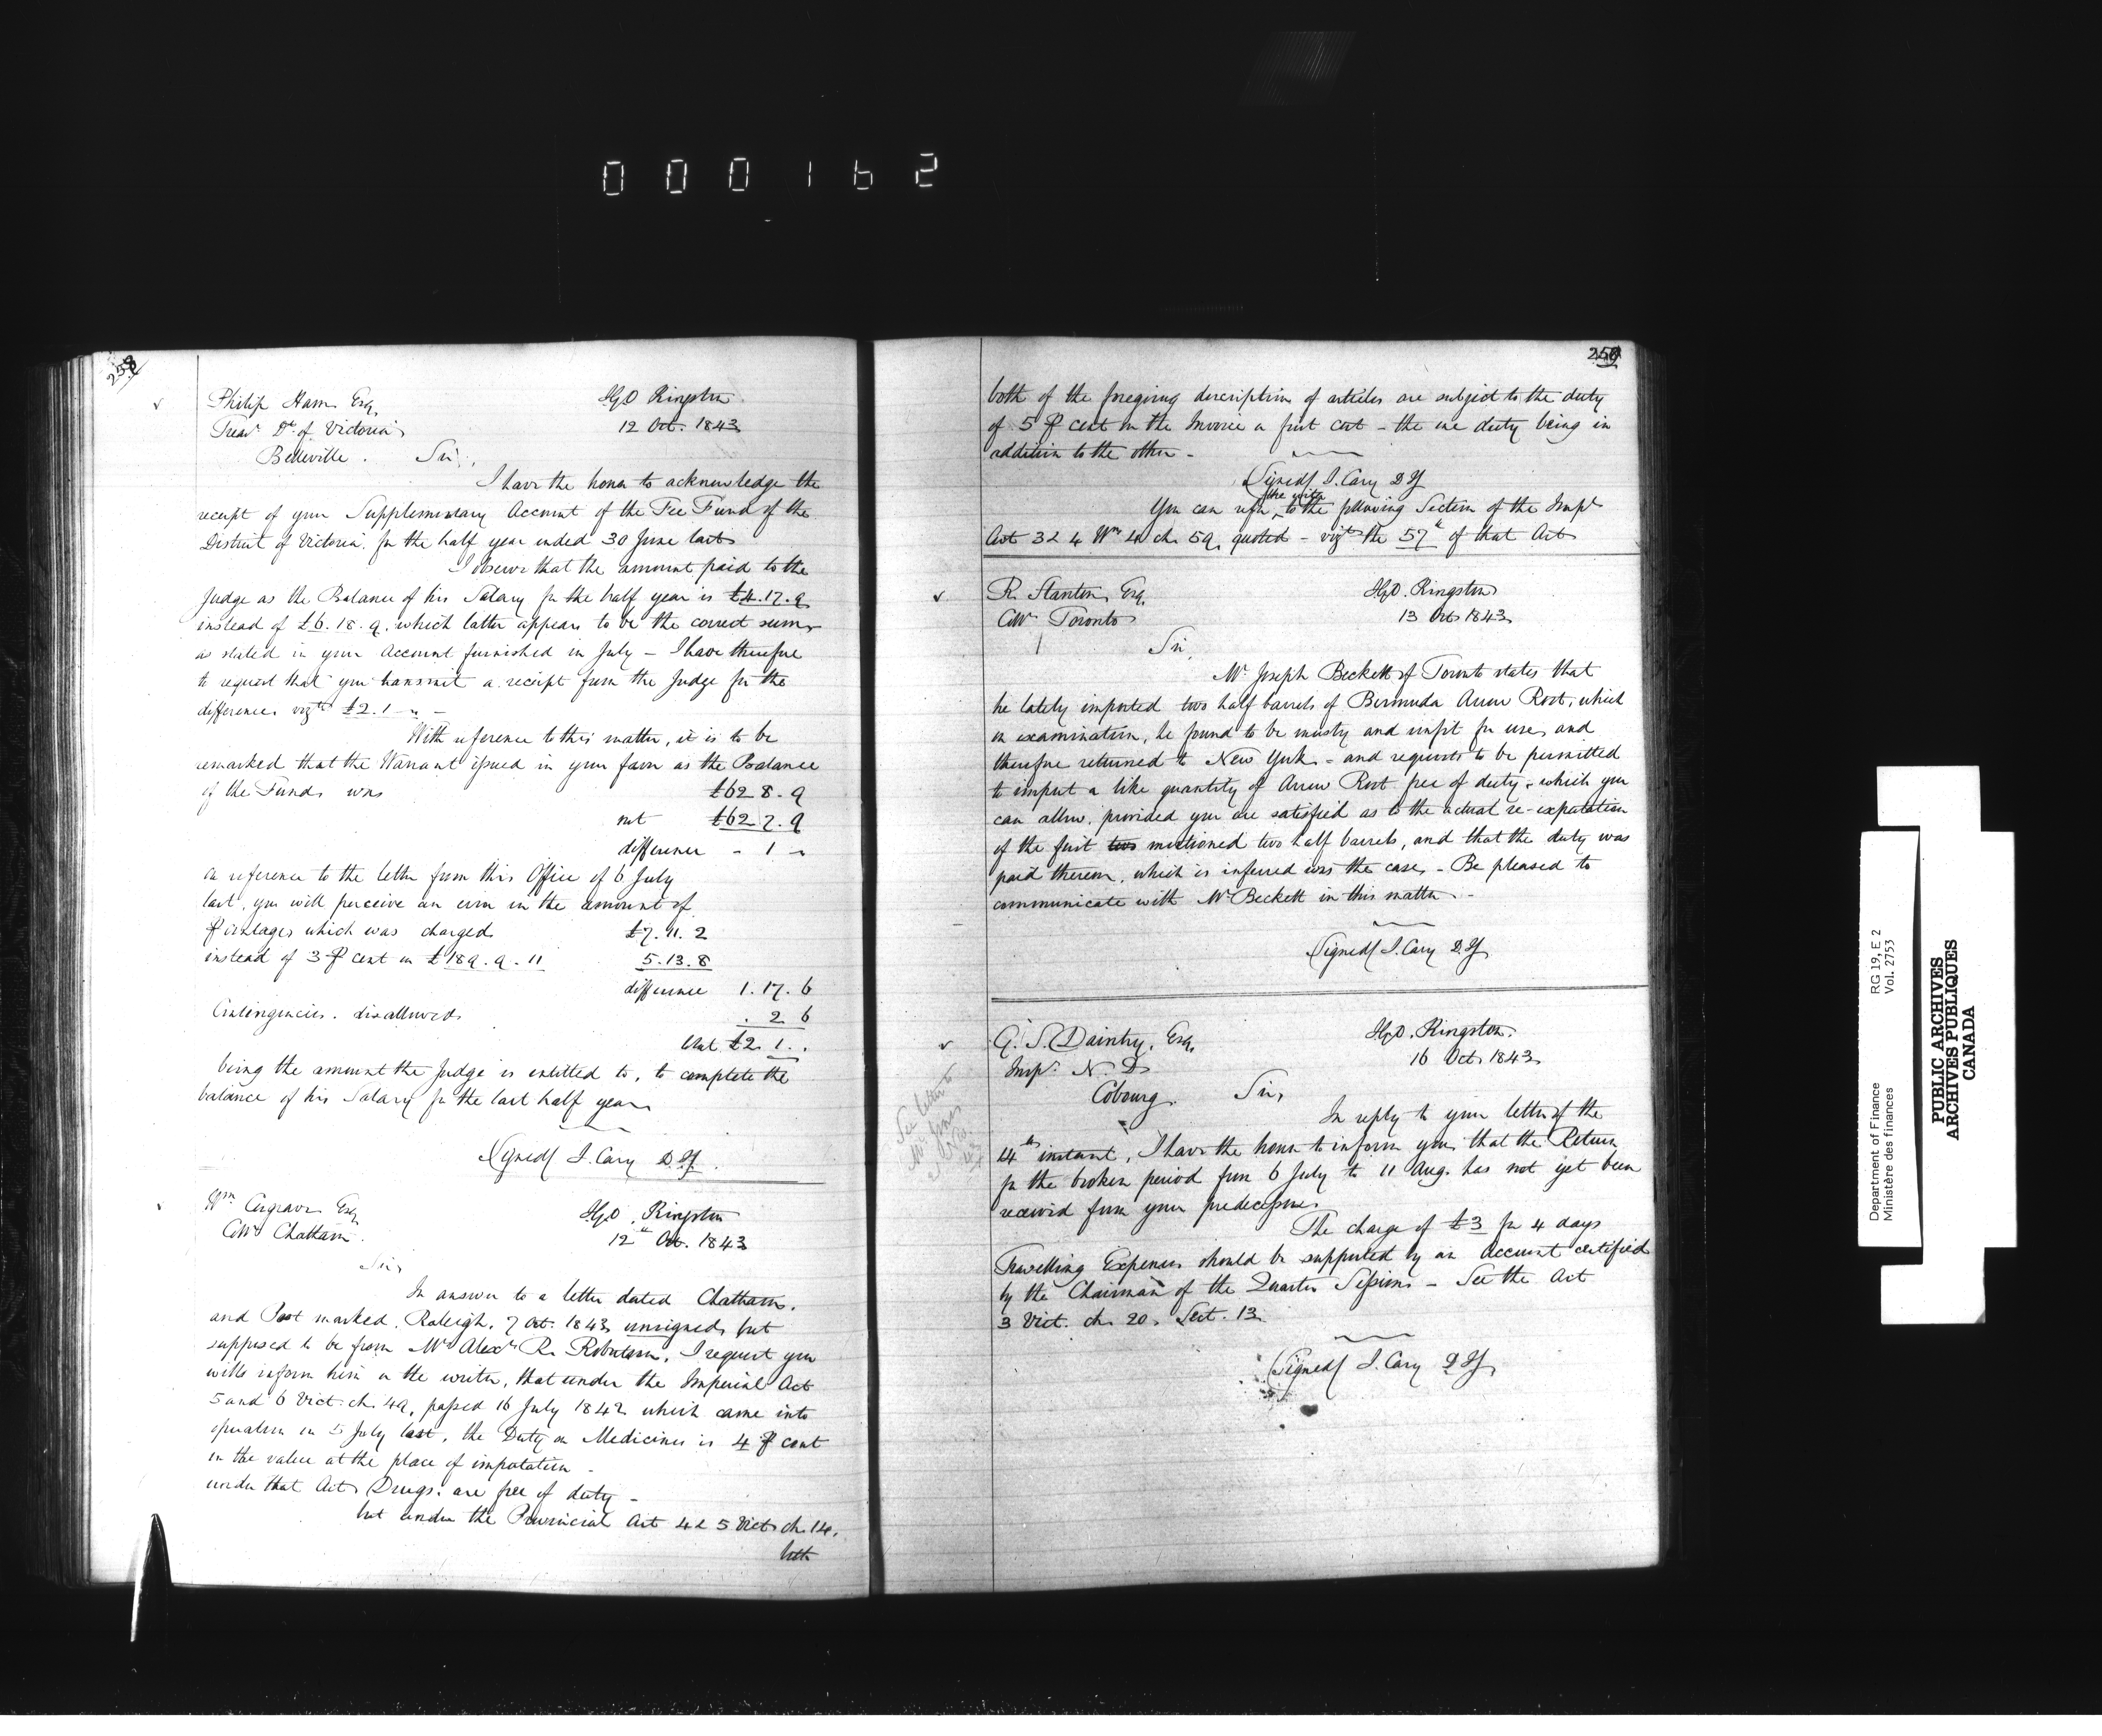 000162
258
Philip Ham Esq. IGO Kingston
Treasr. Dt. of Victoria 12 Oct. 1843
Belleville. Sir,
I have the honor to acknowledge the
receipt of your Supplementary Account of the Fee Fund of the
District of Victoria for the half year ended 30 June last
I observe that the amount paid to the
Judge as the Balance of his Salary for the half year is £4.17.9
instead of £6.18.9. which latter appears to be the correct sum
as stated in your Account furnished in July – I have therefore
to request that you transmit a receipt from the Judge for the
difference vizt. £2.1 „ –
With reference to this matter, it is to be
remarked that the Warrant issued in your favor as the Balance
of the Funds was £62 8. 9
not £62 7. 9
difference - 1 -
on reference to the letter from this Office of 6 July
last, you will perceive an error in the amount of
℔ centages which was charged £7. 11. 2
instead of 3 ℔ cent on £189. 9. 11 5. 13. 8
difference 1. 17. 6
Contingencies. disallowed . 2 6
that £2. 1. .
being the amount the Judge is entitled to, to complete the
balance of his Salary for the last half year
(Signed) J. Cary D I G
Wm. Cosgrave Esq IGO. Kingston
Colr. Chatham. 12th Oct. 1843
Sir,
In answer to a letter dated Chatham.
and Post marked. Raleigh, 7 Oct. 1843 unsigned but
supposed to be from Mr Alexr. R. Robertson, I request you
will inform him or the writer, that under the Imperial Act
5 and 6 Vict. ch. 49, passed 16 July 1842 which came into
operation on 5 July last, the Duty on Medicines is 4 ℔ cent
on the value at the place of importation –
under that Act Drugs. are free of duty –
but under the Provincial Act 4 & 5 Vict. ch. 14.
both
259
both of the foregoing description of articles are subject to the duty
of 5 ℔ cent on the Invoice or first cost – the one duty being in
addition to the other –
(Signed) J. Cary D I G
You can refer the writer to the following Section of the Impl
Act 3 & 4 Wm. 4 ch 59, quoted – vizt. the 57th of that Act
R. Stanton Esq. IGO. Kingston
Colr. Toronto 13 Oct 1843
Sir,
Mr. Joseph Beckett of Toronto states that
he lately imported two half barrels of Bermuda Arrow Root, which
on examination, he found to be musty and unfit for use, and
therefore returned to New York – and requests to be permitted
to import a like quantity of Arrow Root free of duty, which you
can allow. provided you are satisfied as to the actual re-exportation
of the first two mentioned two half barrels, and that the duty was
paid thereon, which is inferred was the case – Be pleased to
communicate with Mr Beckett in this matter. –
(Signed) J. Cary D I G
G. S. Daintry, Esq. IGO. Kingston.
Inspr. N. D 16 Oct 1843
Cobourg. Sir,
See letter to
In reply to your letter of the
14th instant, I have the honor to inform you that the Return
for the broken period from 6 July to 11 Aug. has not yet been
received from your predecessor.
The charge of £3 for 4 days
Travelling Expenses should be supported by an Account certified
by the Chairman of the Quarter Sessions – See the Act
3 Vict. ch 20, Sect. 13.
(Signed) J. Cary D I G
Department of Finance RG 19, E 2
Ministère des finances Vol. 2753
PUBLIC ARCHIVES
ARCHIVES PUBLIQUES
CANADA